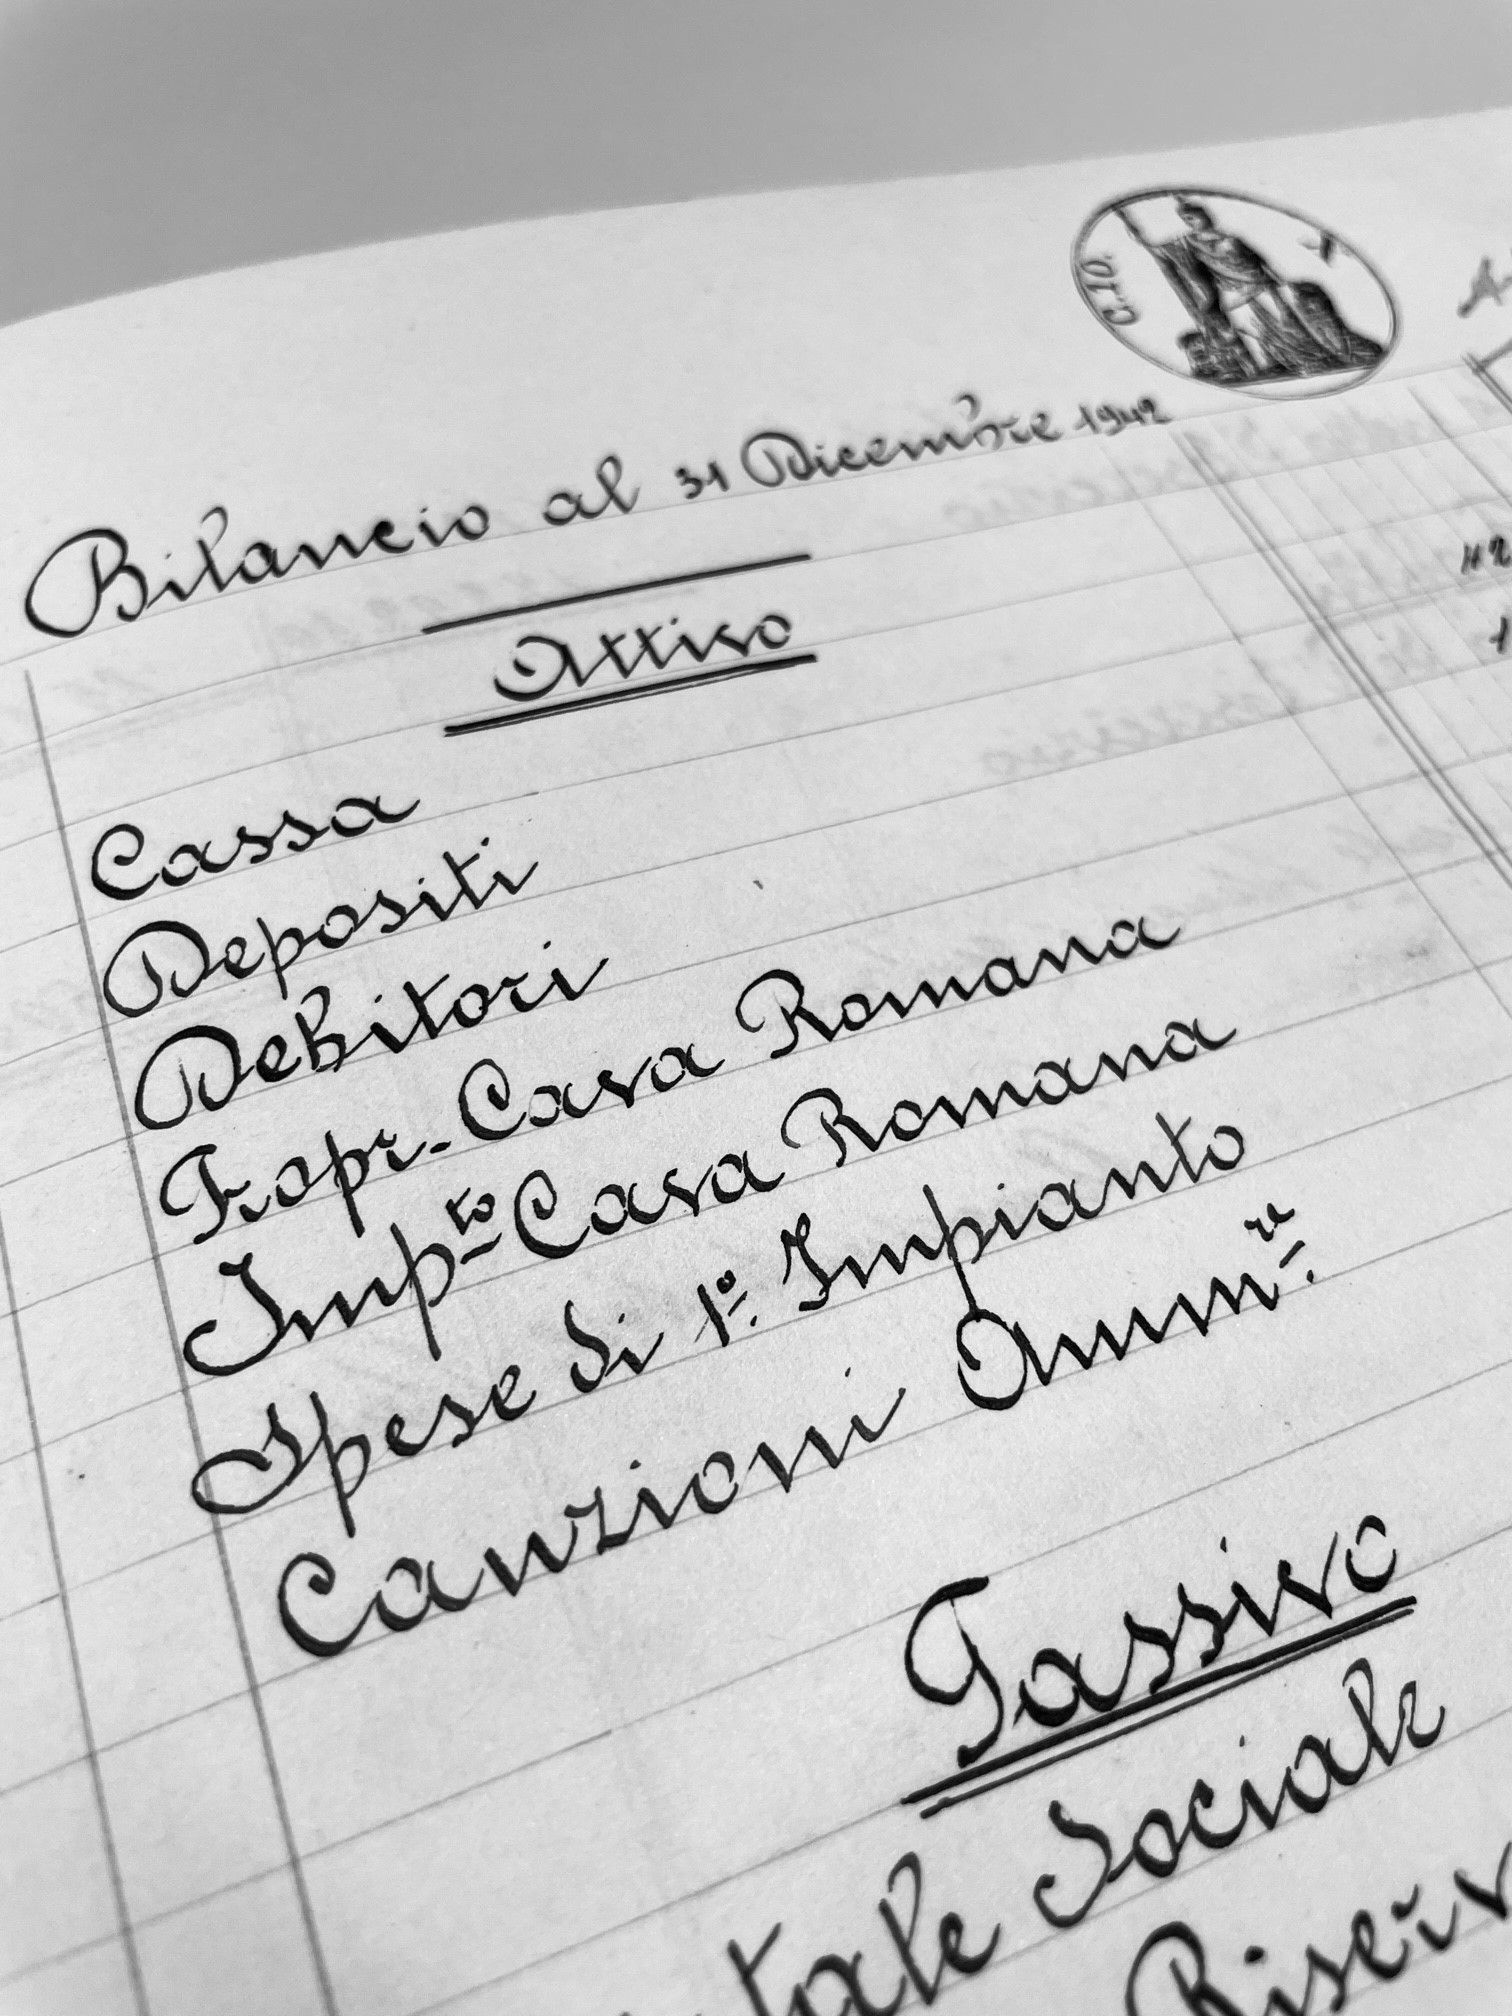 C.10.
Bilancio al 31 Dicembre 1942
Attivo
Cassa
Depositi
Debitori
Propr. Casa Romana
Imp.to Casa Romana
Spese di 1º. Impianto
Cauzioni Amm.re
Passivo
tale Sociale
Riserv